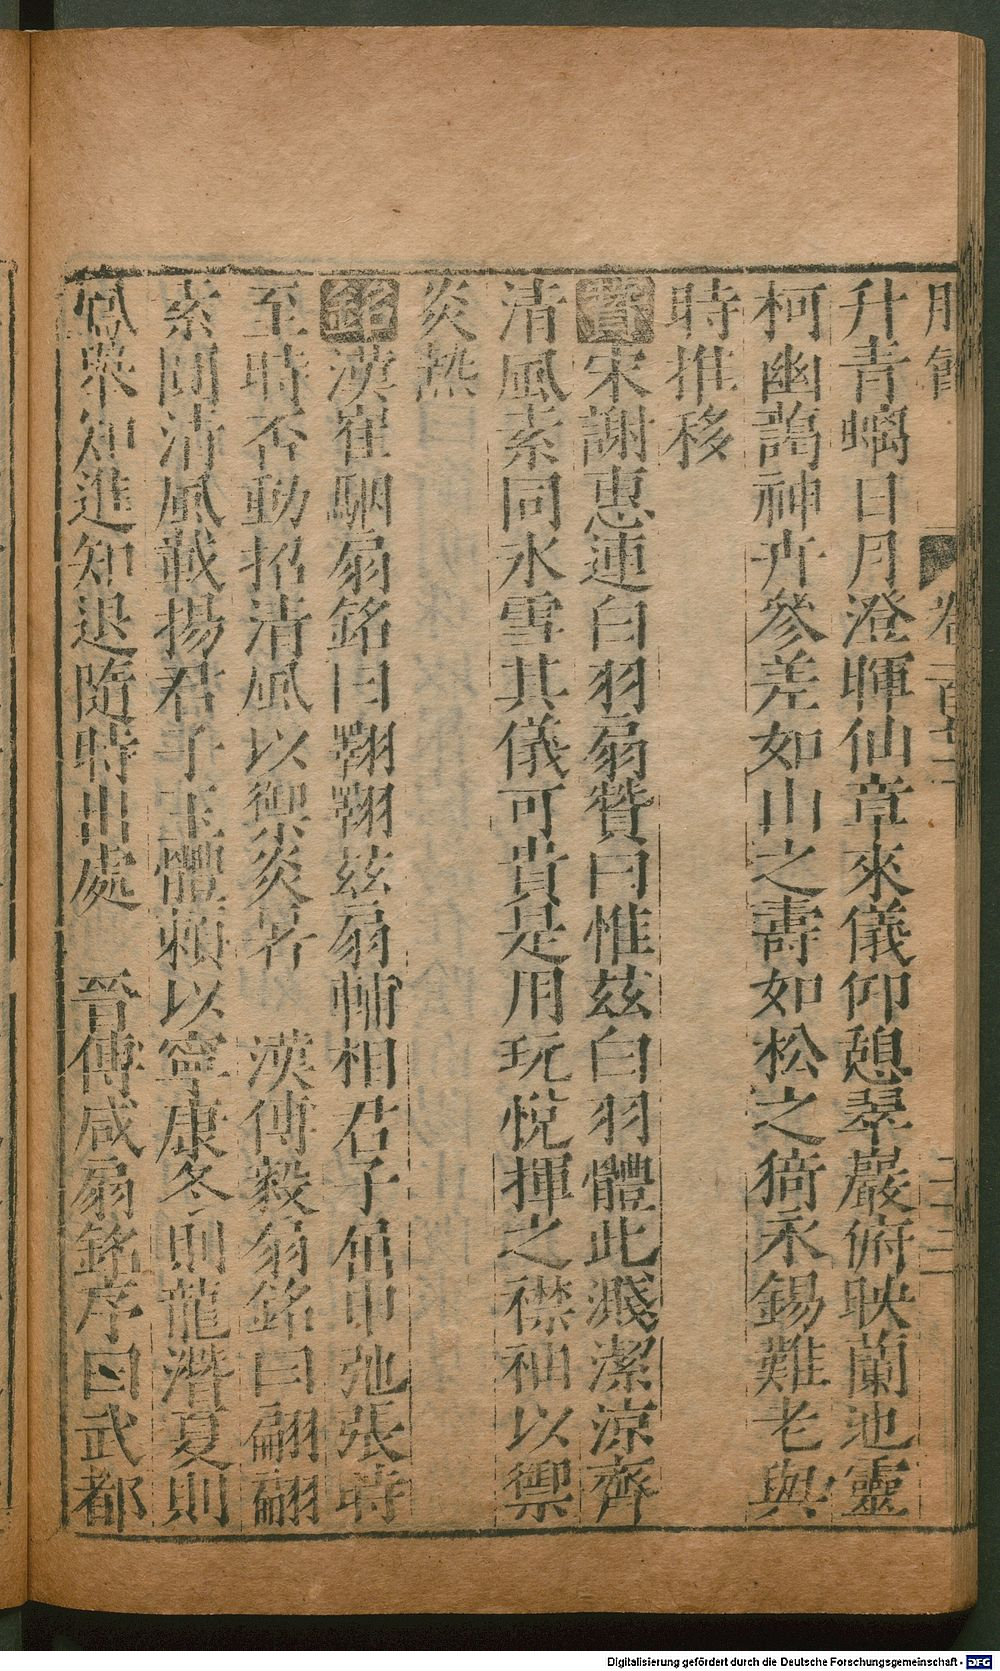 升青螭日月澄暉仙章來儀仰憩翠巖俯映蘭池靈
柯幽藹神卉參差如山之壽如松之猗永錫難老與
時推移
贊宋謝惠連白羽扇贊曰惟茲白羽體此淑潔涼齊
清風素同氷雪其儀可貴是用玩悅揮之襟袖以禦
炎熱
銘漢崔駰扇銘曰翩翩茲扇輔相君子屈申弛張時
至時否動招清風以御炎暑 漢傅毅扇銘曰翩翩
素圓清風載揚君子玉體賴以寧康冬則龍潛夏則
鳳舉知進知退隨時出處 晉傅咸扇銘序曰武都
Digitalisierung gefördert durch die Deutsche Forschungsgemeinschaft - DFG